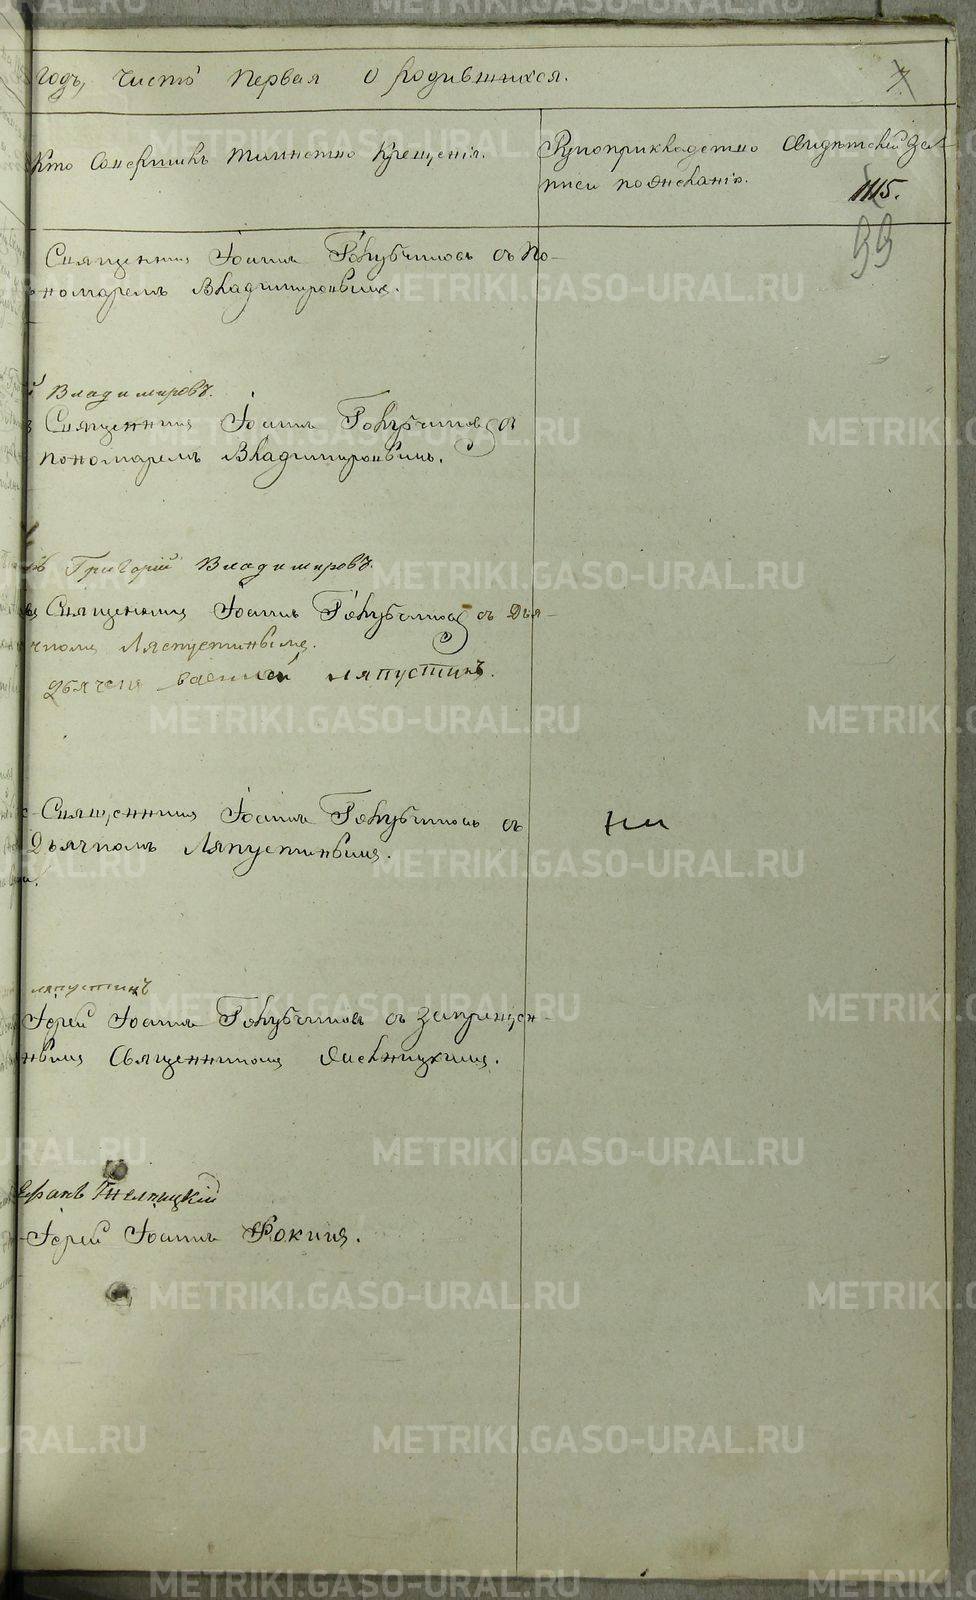 годъ, часть первая о родившихся.
7
Кто совершилъ таинство крещенія.
Рукоприкладство свидѣтелей за-
писи по желанію.
1115.
99
Священникъ Іоаннъ Голубчиковъ съ по-
номаремъ Владимировымъ.
Владимировъ.
Священникъ Іоаннъ Голубчиковъ съ
пономаремъ Владимировымъ.
Григорій Владимировъ.
Священникъ Іоаннъ Голубчиковъ съ дья-
чкомъ Ляпустинымъ.
Дьячекъ Василей Ляпустинъ.
Священникъ Іоаннъ Голубчиковъ съ
Дьячкомъ Ляпустинымъ.
Ляпустинъ
Іерей Іоаннъ Голубчиковъ съ запрещен-
нымъ Священникомъ
Іерей Іоаннъ Фокинъ.
METRIKI.GASO-URAL.RU